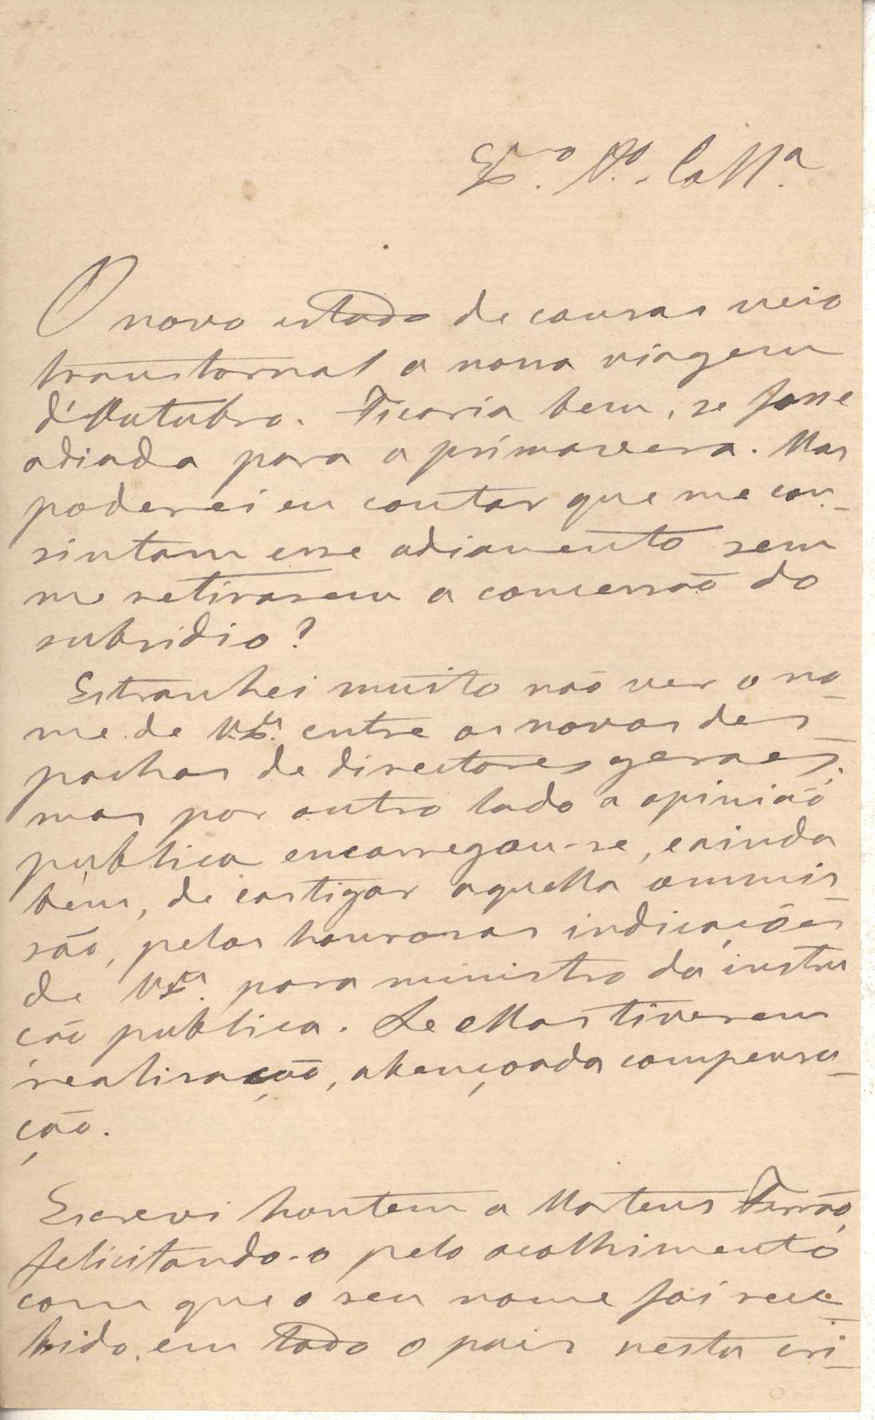 Ex.mo Am.o e Coll.a
O novo estado de cousas veio
transtornar a nossa viagem
d'Outubro. Ficaria bem, se fosse
adiada para a primavera. Mas
poderei eu contar que me con-
sintam esse adiamento sem
me retirarem a concessão do
subsidio?
Estranhei muito não ver o no-
me de V.Ex.a entre os novos des-
pachos de directores geraes;
mas por outro lado a opinião
publica encarregou-se, e ainda
bem, de castigar aquella ommis
são, pelas honrosas indicações
de V.Ex.a para ministro da instru
cão publica. Se ellas tiverem
realisação, abençoada compensa-
ção.
Escrevi hontem a Martens Ferrão,
felicitando-o pelo acolhimento
com que o seu nome foi rece-
bido em todo o paiz nesta cri-